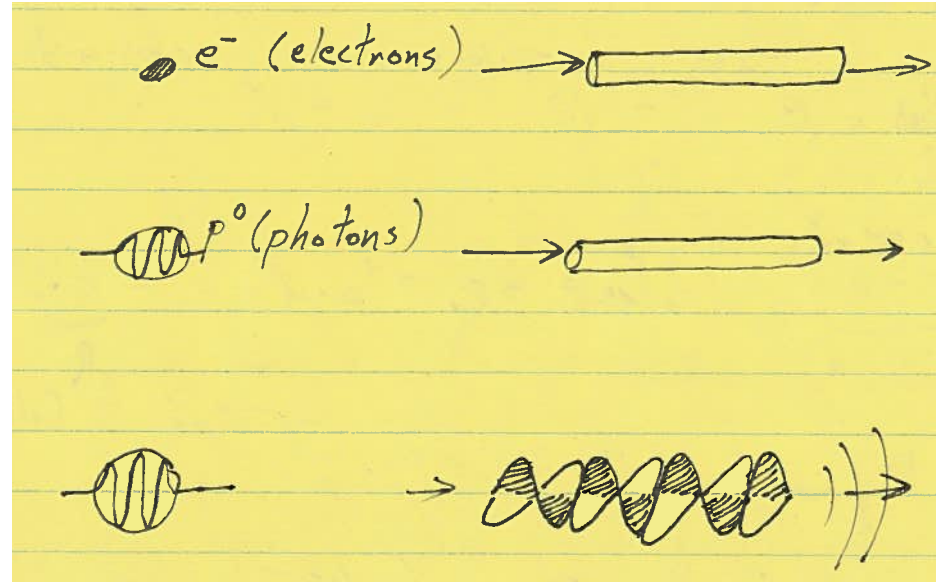 e⁻ (electrons)
p⁰ (photons)